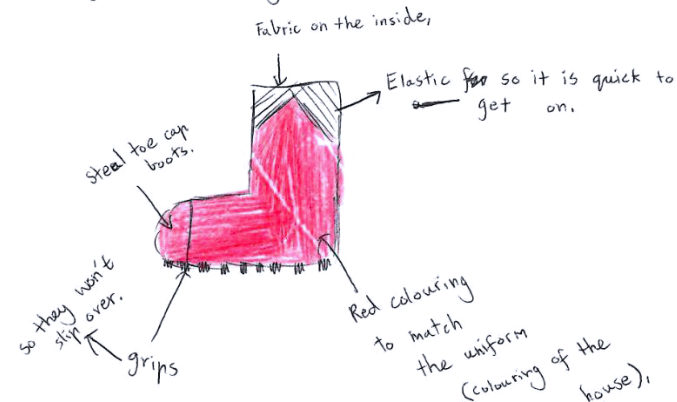 Fabric on the inside,
Elastic so it is quick to
get on.
steal toe cap
boots.
so they won't
slip over.
grips
Red colouring
to match
the uniform
(colouring of the
house),